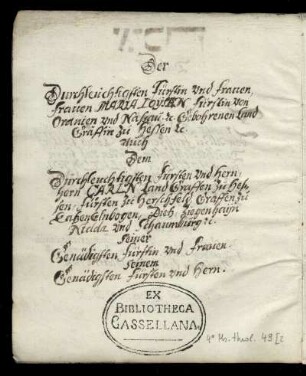 Der
Durchleuchtigsten Fürstin vnd frauen,
Frauen MARIA LOVISEN Fürstin von
Oranien vnd Nassau ꝛc Gebohrenen Land
Gräffin zu Hessen ꝛc
Auch
Dem
Durchleuchtigsten Fursten vnd Hern,
Hern CARLN Land Graffen zu Hes-
sen Fursten zu Herschfeld Graffen zu
Catzenelnbogen, Dietz, Ziegenhayn
Nidda vnd Schaumburg ꝛc.
Seiner
Genädigsten Furstin vnd Frauen
Seinem
Genädigsten Fursten vnd Hern.
EX
BIBLIOTHECA
CASSELLANA.
4° Ms. theol. 49